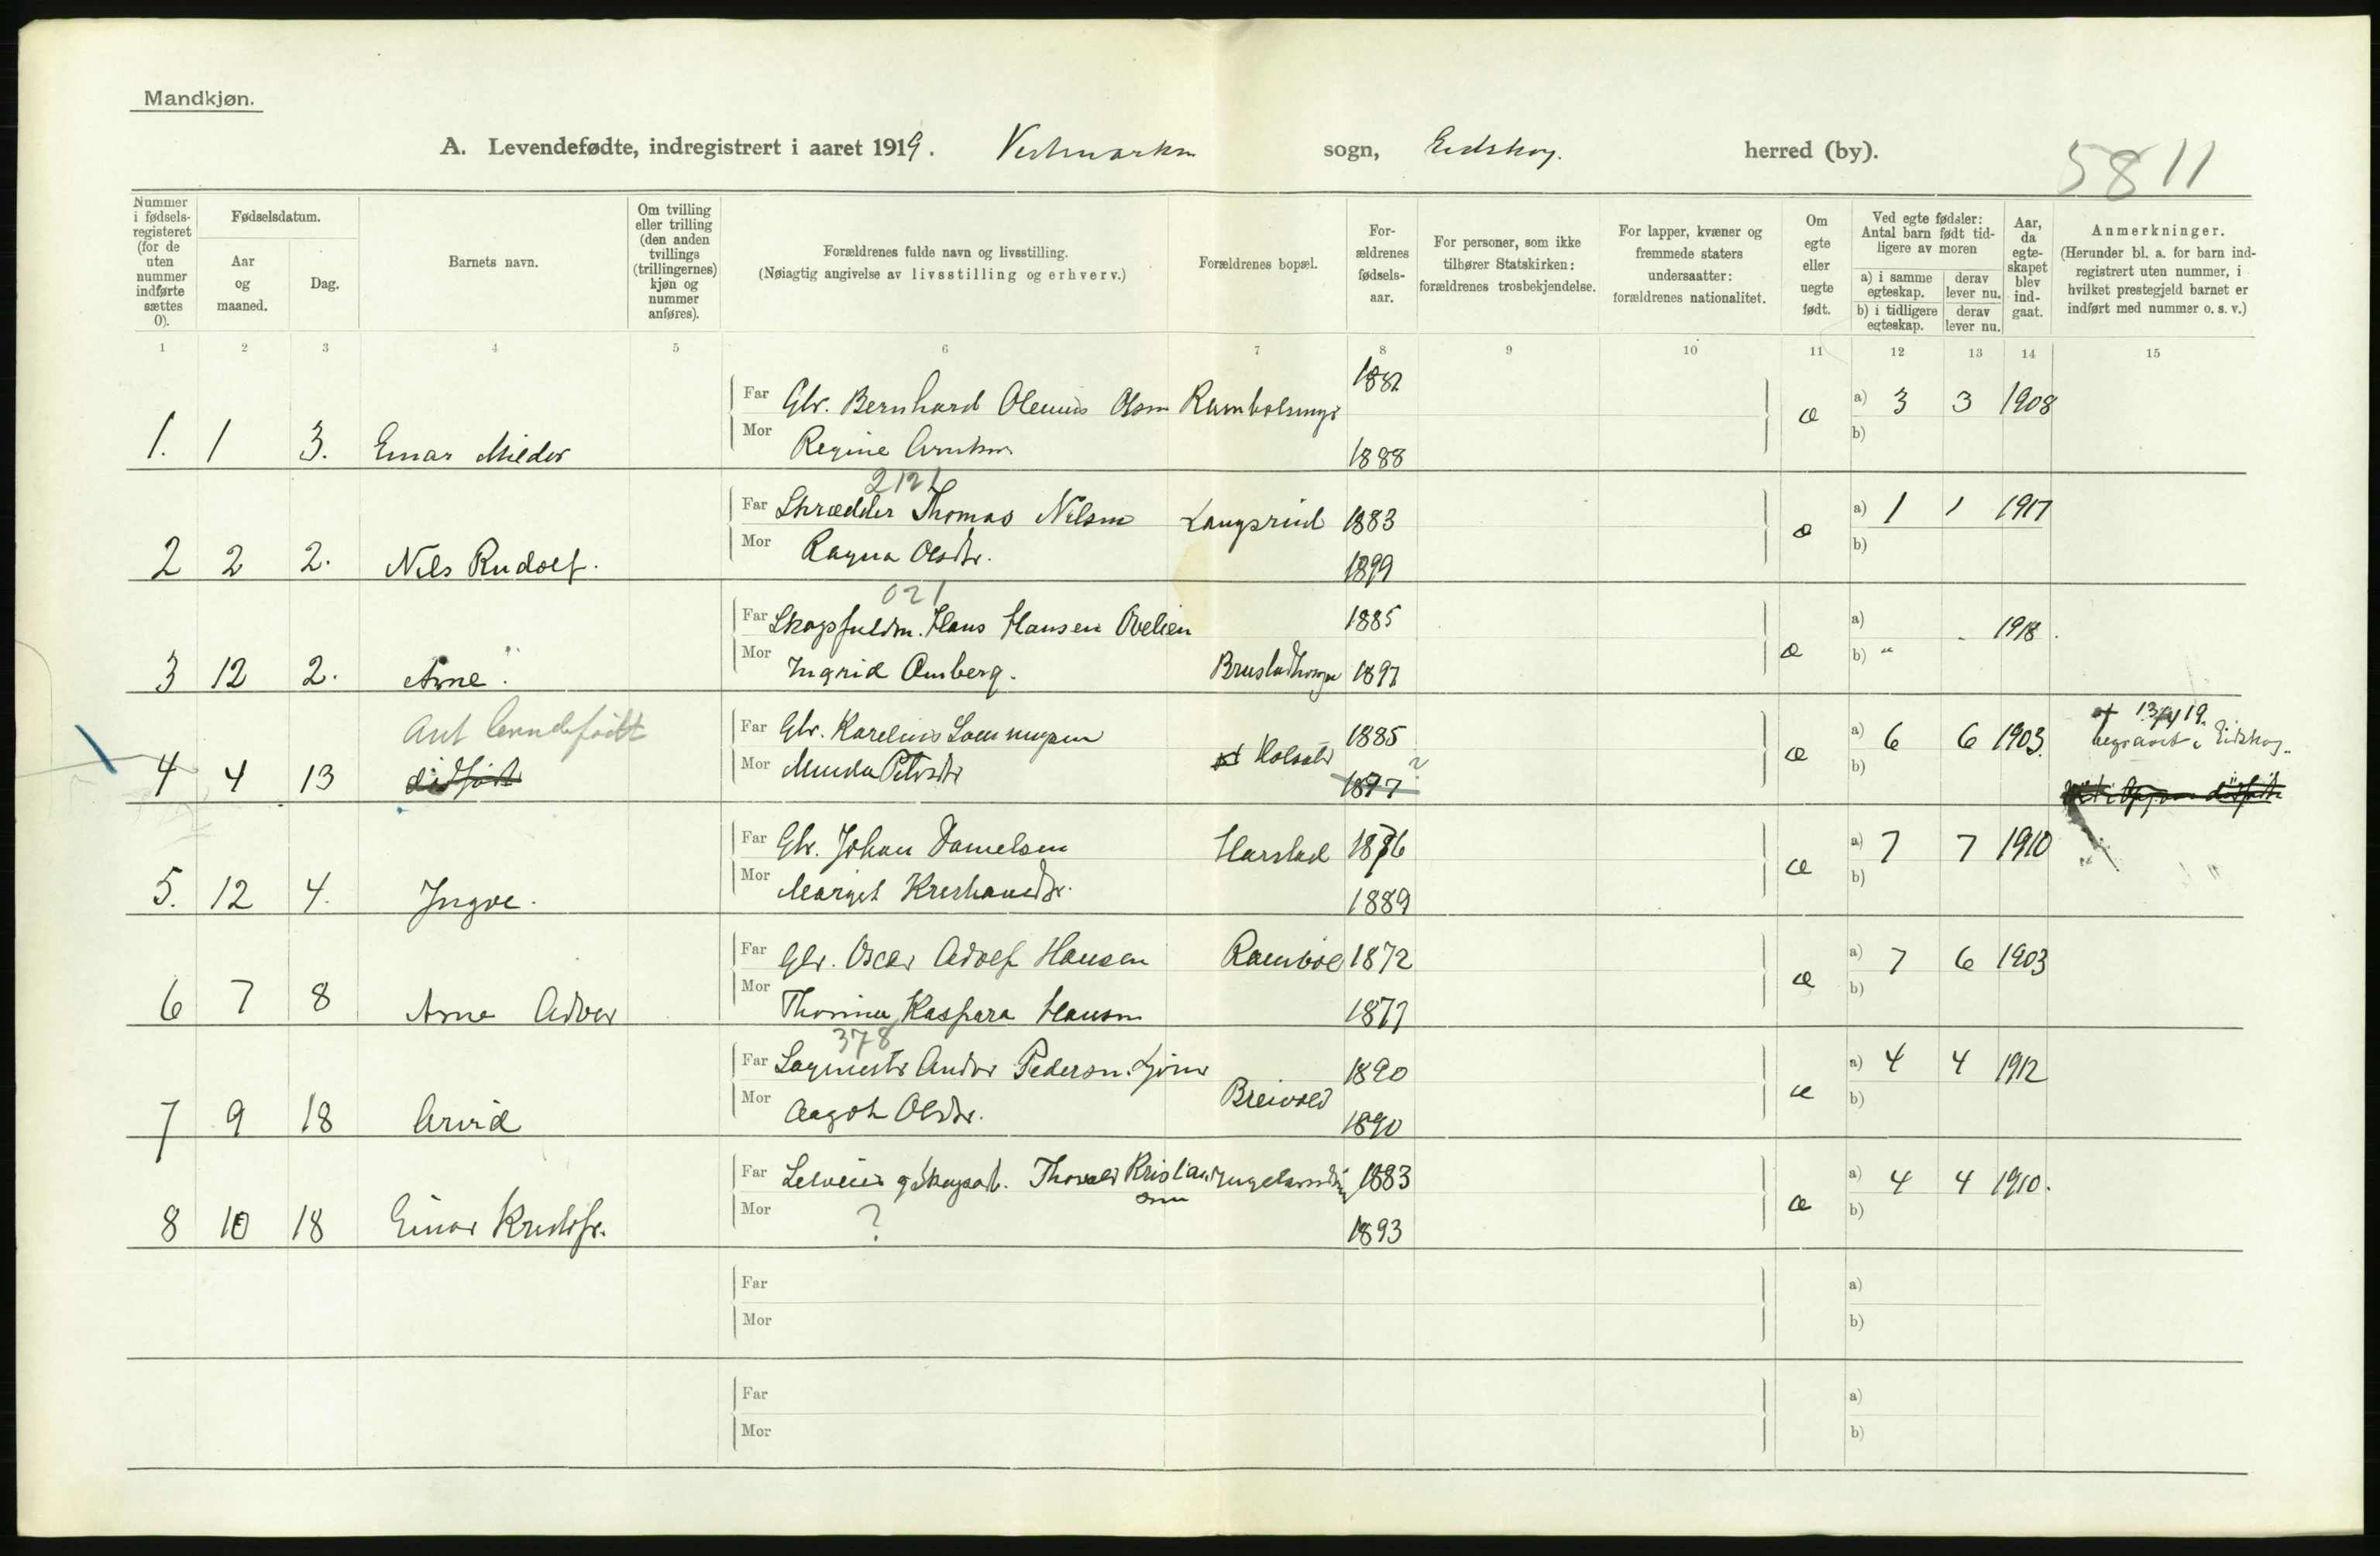 Mandkjøn.
A. Levendefødte, indregistrert i aaret 1919. Vestmarken sogn, Eidskog. herred (by).
5811
Nummer i fødsels-registeret (for de uten nummer indførte sættes 0).
Fødselsdatum.
Aar og maaned.
Dag.
Barnets navn.
Om tvilling eller trilling (den anden tvillings (trillingernes) kjøn og nummer anføres).
Forældrenes fulde navn og livsstilling.
(Nøiagtig angivelse av livsstilling og erhverv.)
Forældrenes bopæl.
For-ældrenes fødsels-aar.
For personer, som ikke tilhører Statskirken: forældrenes trosbekjendelse.
For lapper, kvæner og fremmede staters undersaatter: forældrenes nationalitet.
Om egte eller uegte født.
Ved egte fødsler: Antal barn født tid-ligere av moren
a) i samme egteskap. derav lever nu.
b) i tidligere egteskap. derav lever nu.
Aar, da egte-skapet blev ind-gaat.
Anmerkninger.
(Herunder bl. a. for barn ind-registrert uten nummer, i hvilket prestegjeld barnet er indført med nummer o. s. v.)
1 2 3 4 5 6 7 8 9 10 11 12 13 14 15
Far Gbr. Bernhard Olenius Olsen 1882 a) 3 3 1908
1. 1 3. Einar Mor Regine 1888 æ b)
2121
Far Skrædder Thomas Nilsen 1883 a) 1 1 1917
2 2 2. Nils Rudolf. Mor Ragna Olsdtr. 1899 æ b)
021
Far Skogfuldm. Hans Hansen Ovelien 1885 a) 1918.
3 12 2. Arne. Mor Ingrid Amberg. 1897 æ b) "
Far Gbr. Karelius 1885 a) 6 6 1903. 13/4 19. begravet i Eidskog.
4 4 13 dødfødt Mor Petersdtr 1877 ? æ b)
Far Gbr. Johan Danielsen Harstad 1876 a) 7 7 1910
5. 12 4. Ingve. Mor Margit Kristiansdtr. 1889 æ b)
Far Gbr. Oscar Adolf Hansen 1872 a) 7 6 1903
6 7 8 Arne Mor Kaspara Hansen 1877 æ b)
378
Far Pedersen 1890 a) 4 4 1912
7 9 18 Arvid Mor Aagot Olsdtr. Breivold 1890 æ b)
Far Thorvald Kristiansen 1883 a) 4 4 1910.
8 10 18 Einar Mor ? 1893 æ b)
Far a)
Mor b)
Far a)
Mor b)